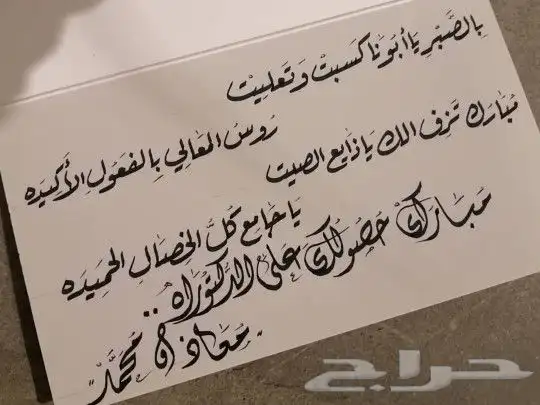 بِالصَّبْرِ يَا أبُونَا كَسَبتْ وَتَعَليْت
رُوسْ المَعَالي بِالفعُولِ الأَكِيدَه
مُبَارَك تزف الك يَا ذَايع الصيت
يَا جَامِع كُلَّ الخِصَالِ الحَمِيدَه
مَبَارَك حصُولكْ عَلى الدكتُورَاه..
مُحَمَّد
حراج